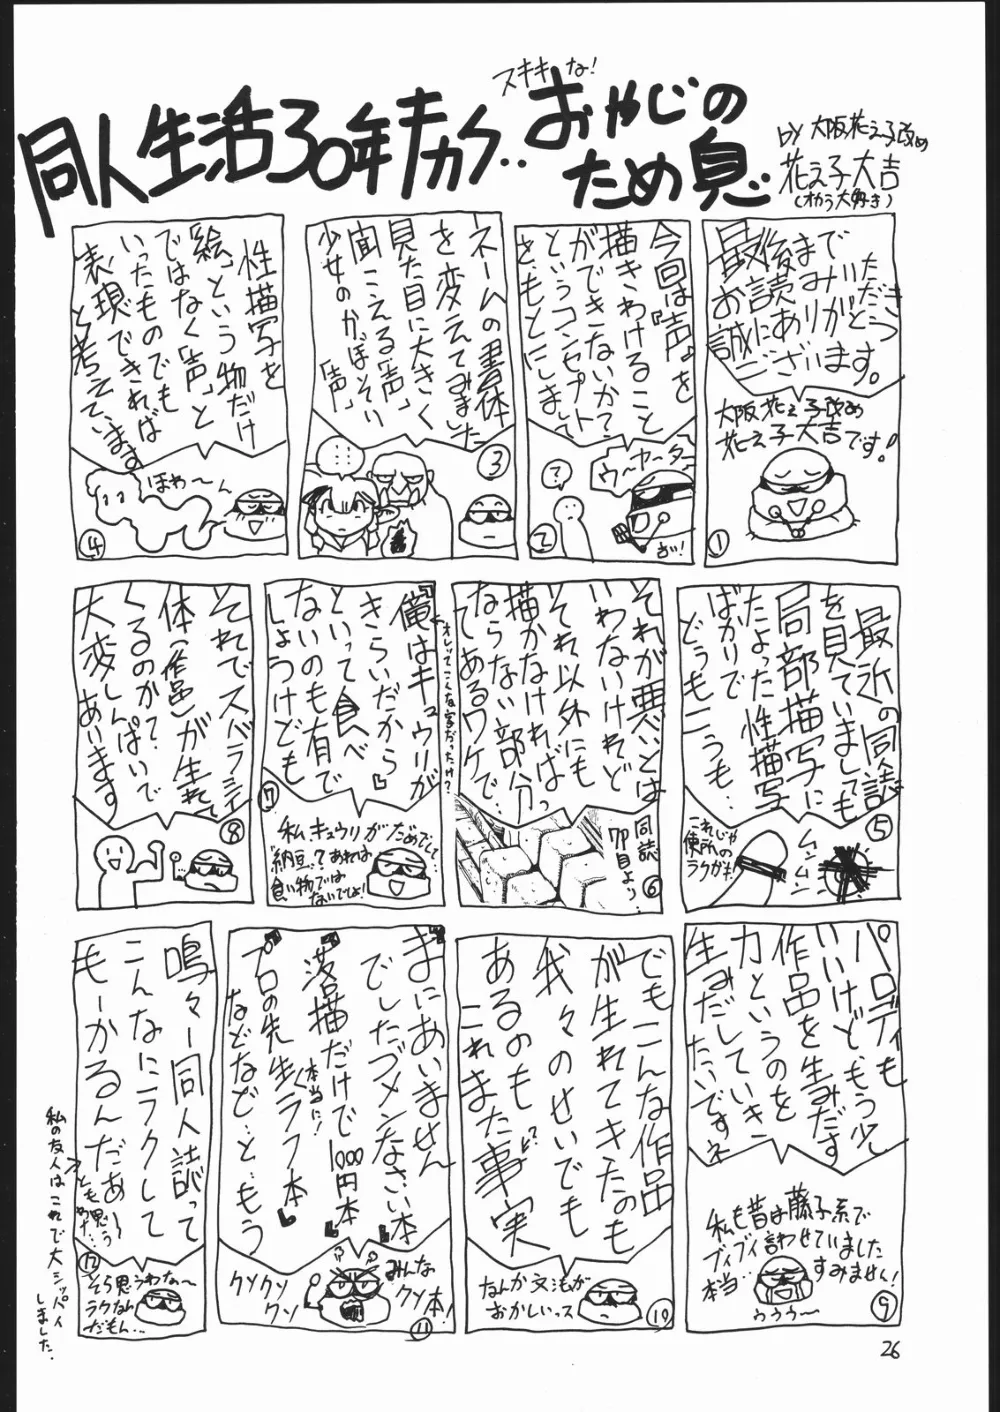 スキキな!
同人生活30年チカク‥おやじの
ため息
by 大阪花え子改め
花え子大吉
(オカう大好き)
最後まで
お読みいただき
誠にありがとう
ございます。
大阪花え子改め
花え子大吉です!
①
今回は『声』を
描きわけること
ができないかて、
というコンセプト
をもとにしまして
?
ウ〜ヤーター
②
ネームの書体
を変えてみました
見た目に大きく
聞こえる「声」
少女のかぼそい
「声」
③
性描写を
「絵」という物だけ
ではなく「声」と
いったものでも
表現できれば
と考えています
ほわ〜ん
④
最近の同人誌
を見ていましても
局部描写に
たよった性描写
ばかりで
どうもこうも‥
これじゃ
便所の
ラクガキ!
ムンムン
⑤
それが悪いとは
いわないけれど
それ以外にも
描かなければっ
ならない部分
てしあるワケで、
同誌
7P目より‥
⑥
『俺はキュウリが
きらいだから
といって食べ
ないのも有で
しょうけども』
オレってこんな字だったけ?
⑦
私、キュウリがだめでして‥
「納豆」?あれは
食い物では
ないでしょ!
それでスバラシイ
体(作品)が生れて
くるのかて、
大変しんぱいで
あります
⑧
パロディも
いいけどもう少し
作品を生みだす
力というのを
生みだしていき
たいですネ
私も昔は藤子系で
ブイブイ言わせていました
本当‥すみません!
ううう〜
⑨
でもこんな作品
が生れてきたのも
我々のせいでも
あるのも
これまた事実
なんか文法が
おかしいっス
⑩
『まにあいません
でしたゴメンなさい本』
『落描だけで1000円本』
本当に!
『プロの先生くラフ本』
などなど‥ともう
クソクソ
クソ
みんな
クソ本!
⑪
鳴々ー同人誌って
こんなにラクして
もーかるんだぁ〜
とも思う
⑫
そら思うわな〜
ラクなん
だもん‥
私の友人はこれで大シッパイ
しました.
26